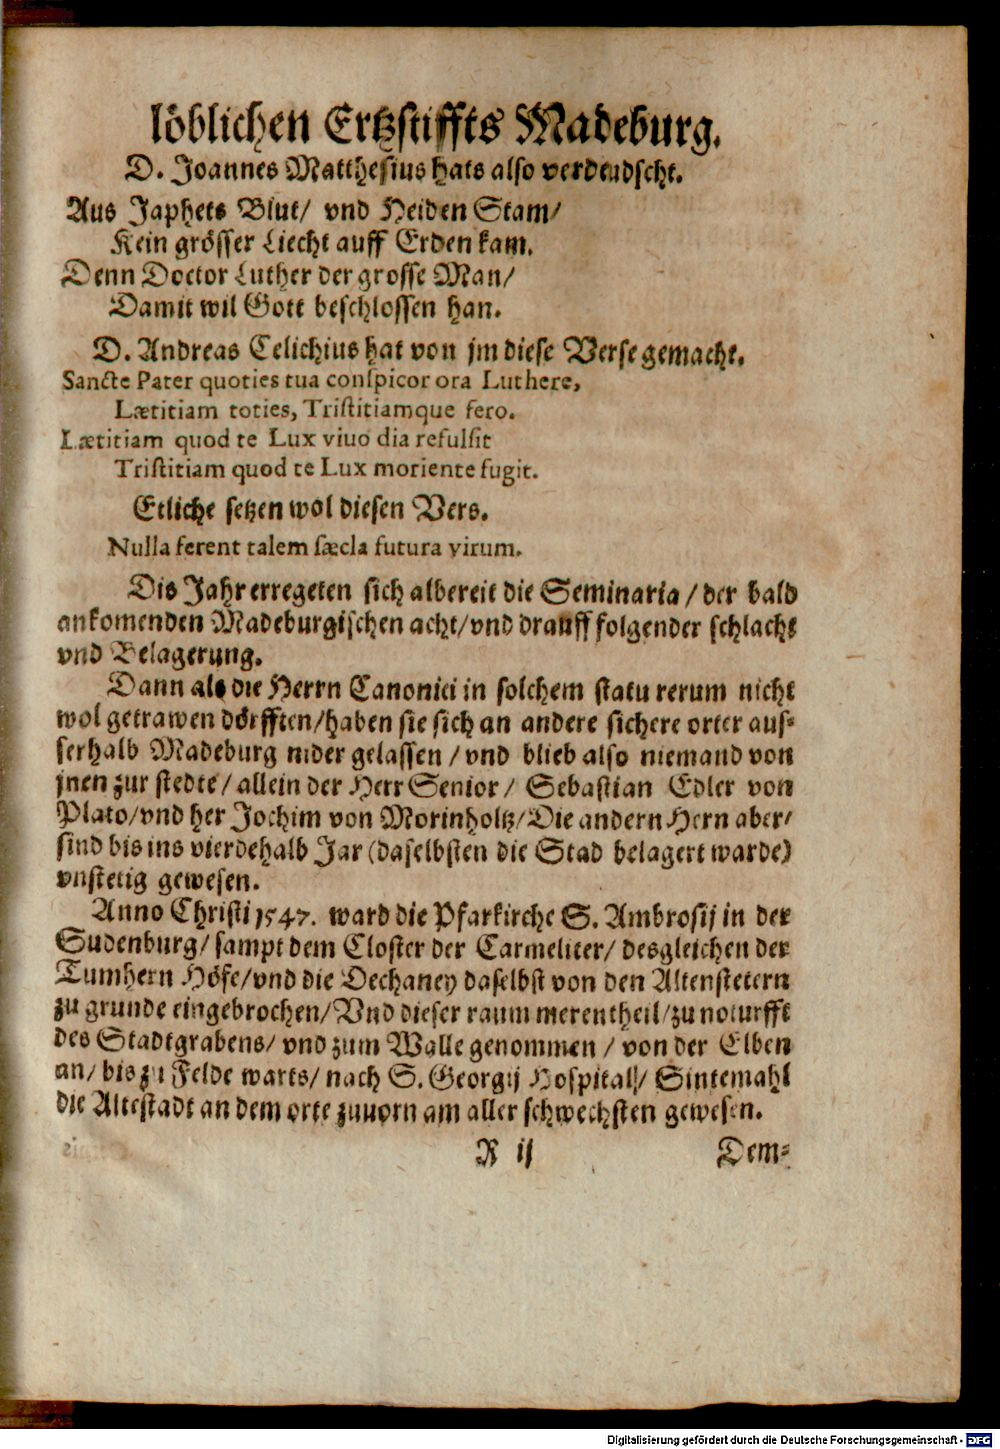 löblichen Ertzstiffts Madeburg.
D. Joannes Matthesius hats also verdeudscht.
Aus Japhets Blut/ vnd Heiden Stam/
Kein grösser Liecht auff Erden kam.
Denn Doctor Luther der grosse Man/
Damit wil Gott beschlossen han.
D. Andreas Celichius hat von jm diese Verse gemacht.
Sancte Pater quoties tua conspicor ora Luthere,
Lætitiam toties, Tristitiamque fero.
Lætitiam quod te Lux viuo dia refulsit
Tristitiam quod te Lux moriente fugit.
Etliche setzen wol diesen Vers.
Nulla ferent talem sæcla futura virum.
Dis Jahr erregeten sich albereit die Seminaria/ der bald
ankomenden Madeburgischen acht/ vnd drauff folgender schlacht
vnd Belagerung.
Dann als die Herrn Canonici in solchem statu rerum nicht
wol getrawen dörfften/ haben sie sich an andere sichere orter aus-
serhalb Madeburg nider gelassen/ vnd blieb also niemand von
jnen zur stedte/ allein der Herr Senior/ Sebastian Edler von
Plato/ vnd her Jochim von Morinholtz/ Die andern Hern aber/
sind bis ins vierdehalb Jar (daselbsten die Stad belagert warde)
vnstetig gewesen.
Anno Christi 1547. ward die Pfarkirche S. Ambrosij in der
Sudenburg/ sampt dem Closter der Carmeliter/ desgleichen der
Tumhern Höfe/ vnd die Dechaney daselbst von den Altenstetern
zu grunde eingebrochen/ Vnd dieser raum merentheil/ zu noturfft
des Stadtgrabens/ vnd zum Walle genommen/ von der Elben
an/ bis zu Felde warts/ nach S. Georgij Hospital/ Sintemahl
die Altestadt an dem orte zuuorn am aller schwechsten gewesen.
R ij
Dem-
Digitalisierung gefördert durch die Deutsche Forschungsgemeinschaft - DFG